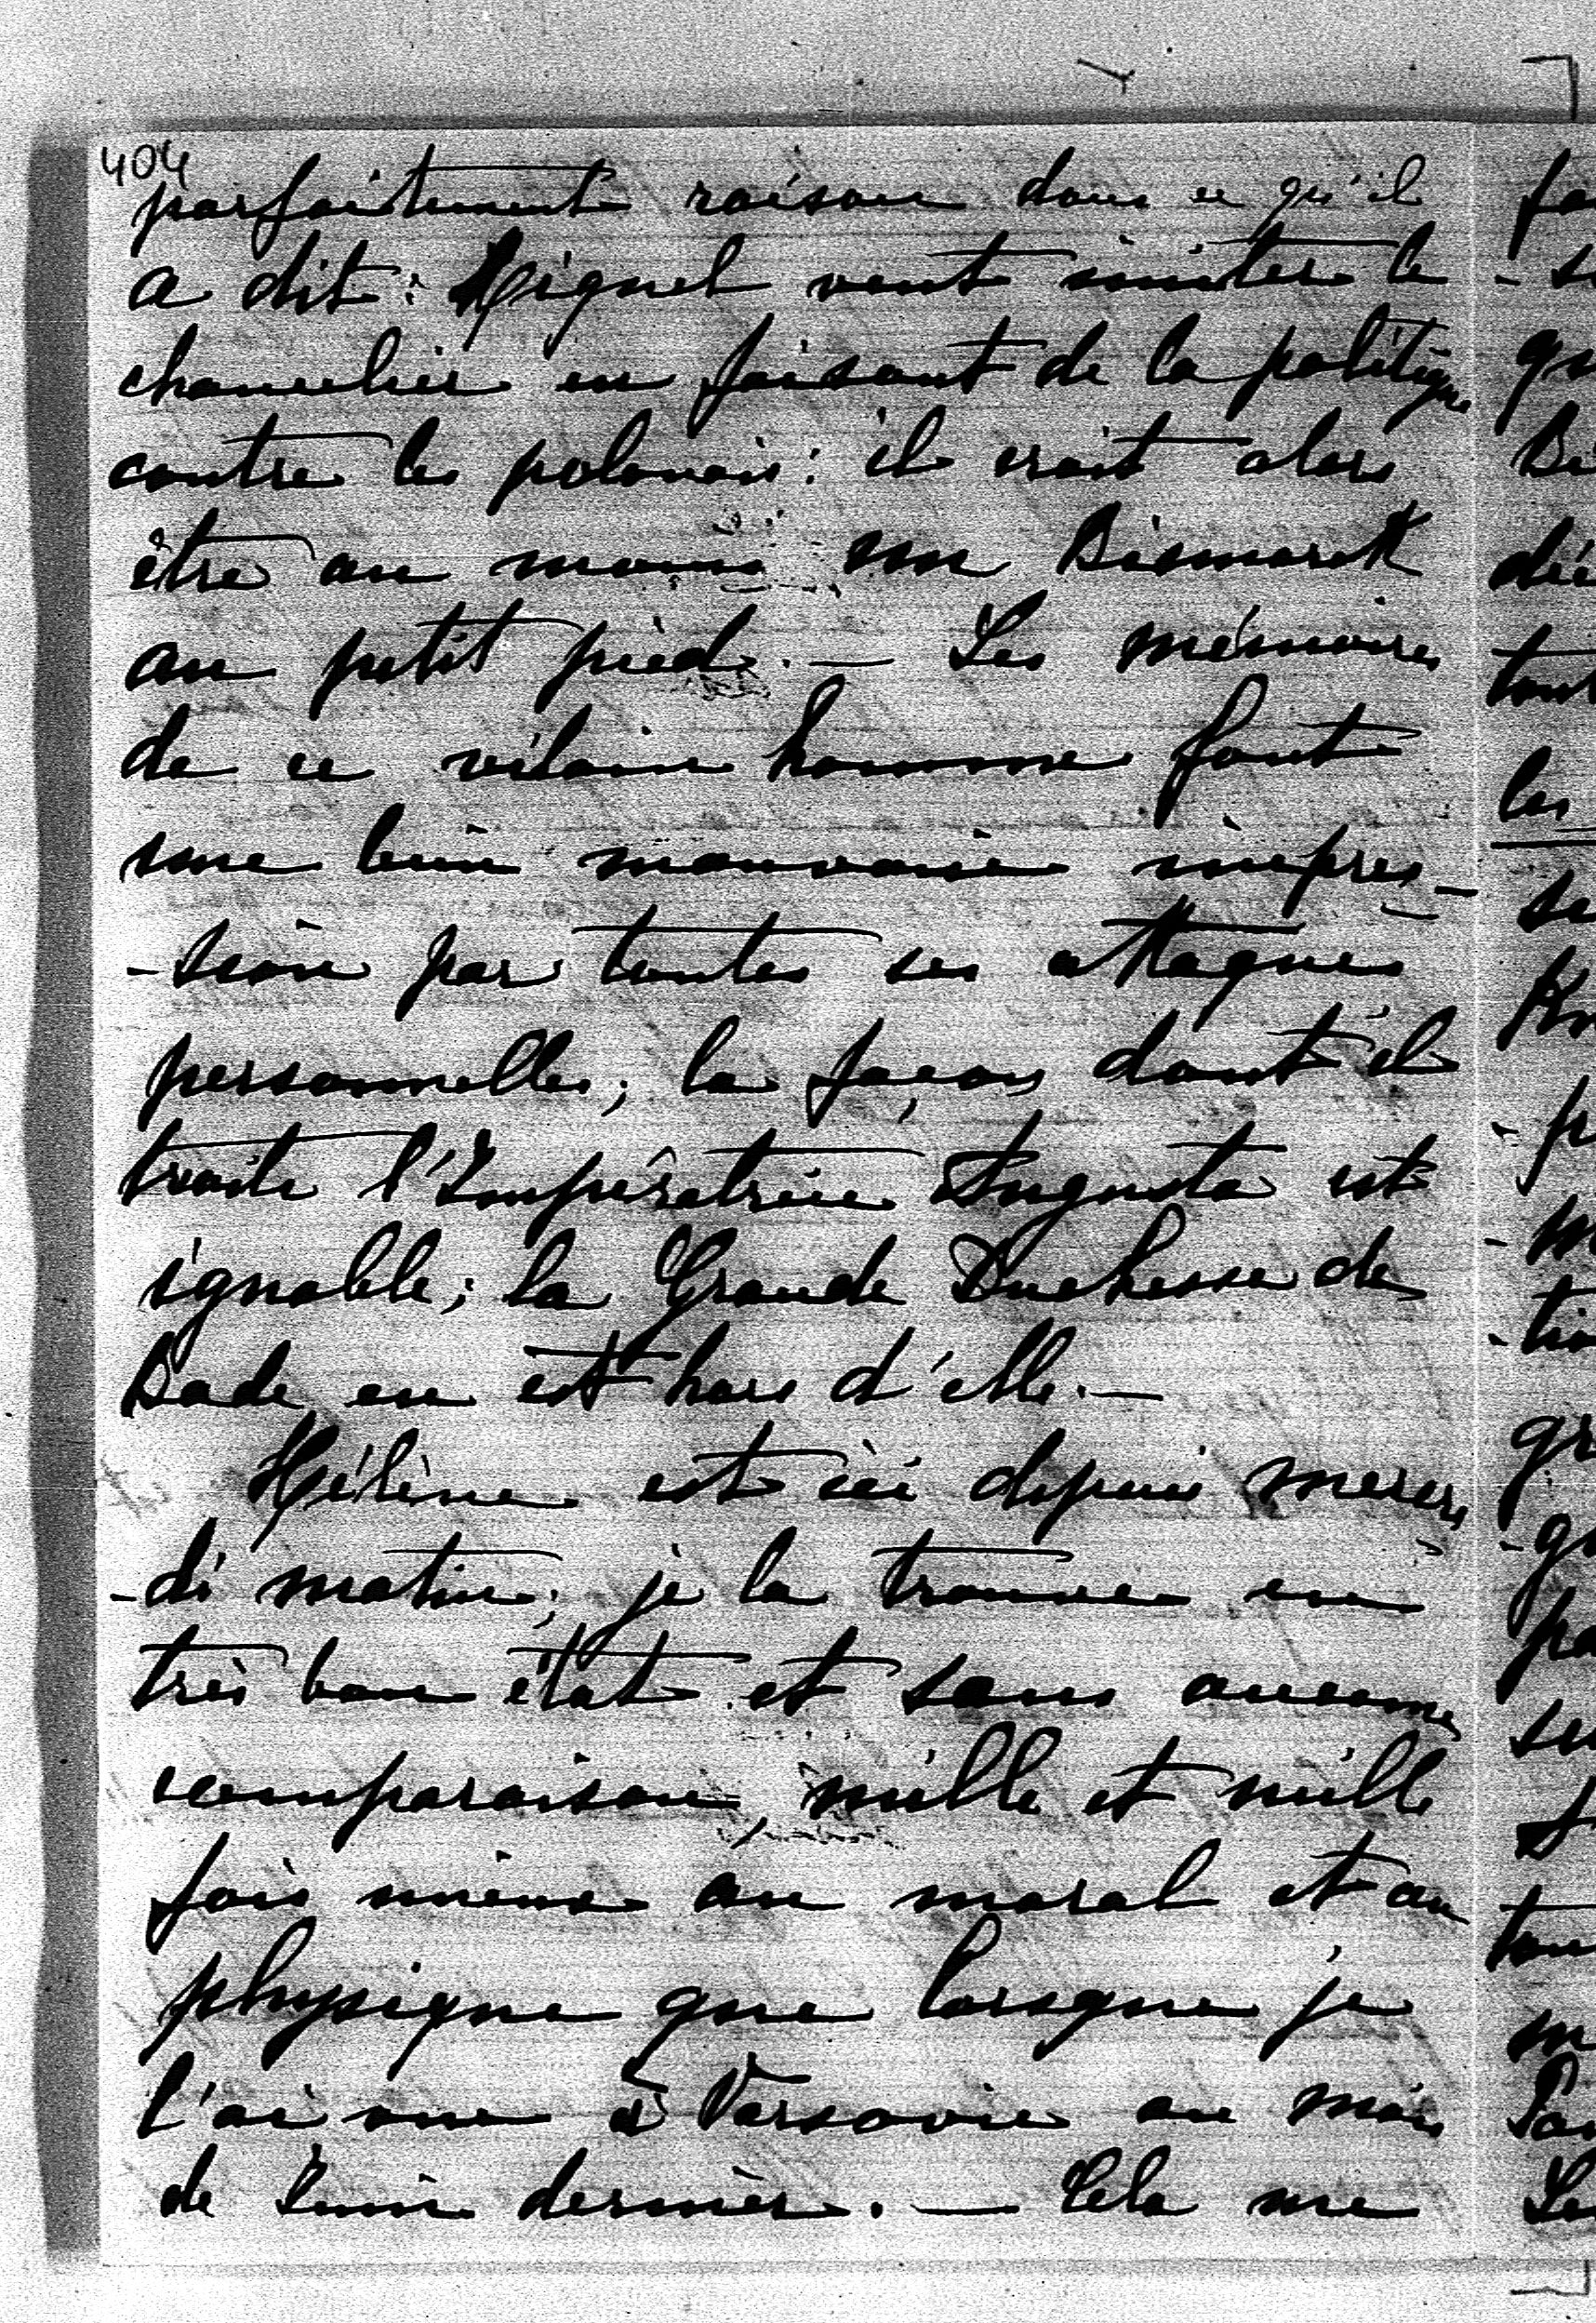 404
parfaitement raison dans ce qu'il
a dit: Miquel veut imiter le
chancelier en faisant de la politique
contre les polonais: il croit alors
être au moins un Bismarck
au petit pied. — Les mémoires
de ce vilain homme font
une bien mauvaise impres-
-sion par toutes ses attaques
personnelles; la façon dont il
traite l'Impératrice Augusta est
ignoble; la Grande Duchesse de
Bade en est hors d'elle. —
Hélène est ici depuis mercre-
-di matin; je la trouve en
très bon état et sans aucune
comparaison, mille et mille
fois mieux au moral et au
physique que lorsque je
l'ai vue à Varsovie au mois
de Juin dernier. — Cela me